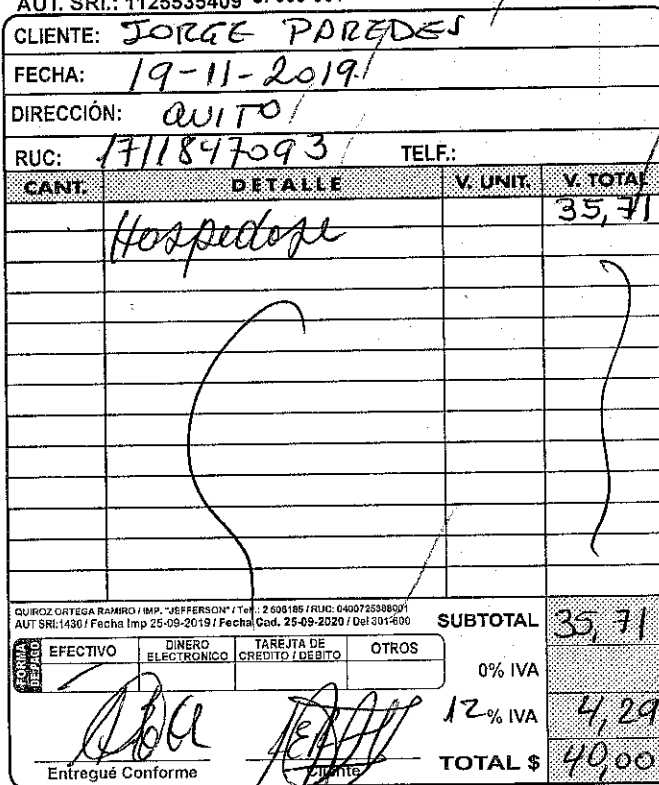 AUT. SRI.: 1125535409
CLIENTE: JORGE PAREDES
FECHA: 19-11-2019
DIRECCIÓN: QUITO
RUC: 1711847093 TELF.:
CANT. DETALLE V. UNIT. V. TOTAL
35,71
Hospedaje
QUIROZ ORTEGA RAMIRO / IMP. "JEFFERSON" / Telf.: 2 606185 / RUC: 0400725388001
AUT SRI:1430 / Fecha Imp 25-09-2019 / Fecha Cad. 25-09-2020 / Del 301-600
SUBTOTAL 35,71
FORMA DE PAGO EFECTIVO DINERO ELECTRONICO TAREJTA DE CREDITO / DEBITO OTROS
0% IVA
12% IVA 4,29
Entregué Conforme Cliente TOTAL $ 40,00